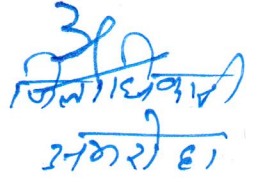 जिलाधिकारी
अमरोहा